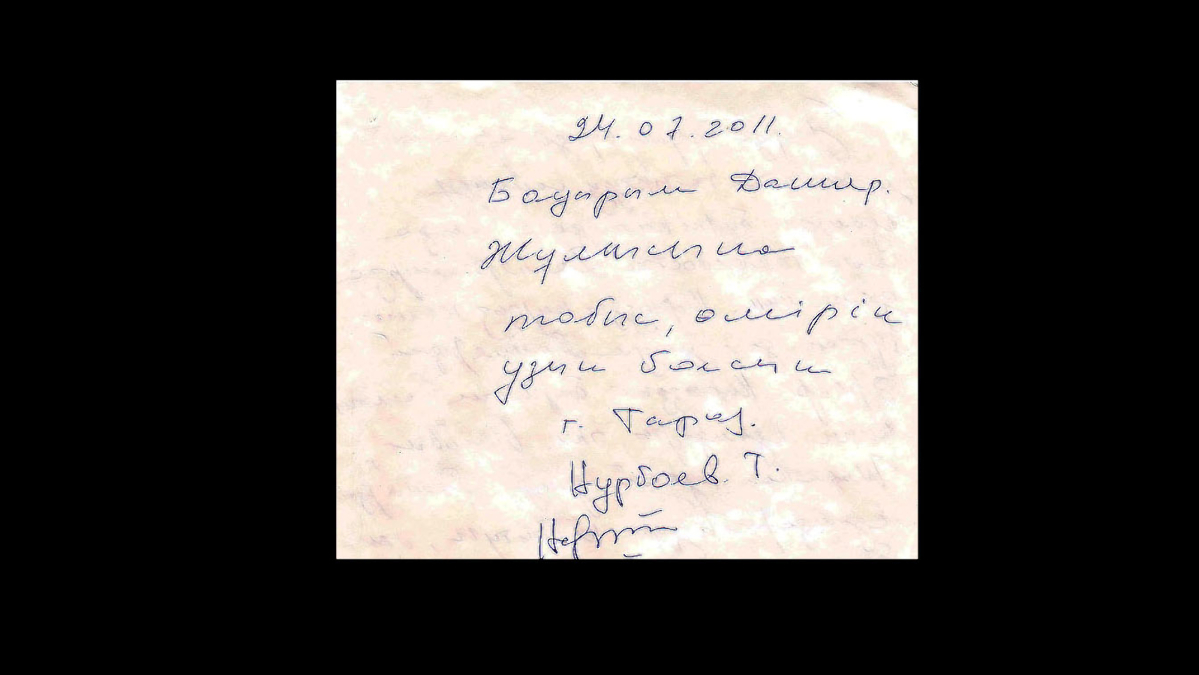 24.07.2011.
Бауырым Дашир.
Жұмысыңа
табыс, өмірің
ұзын болсын
г. Тараз.
Нурбаев. Т.